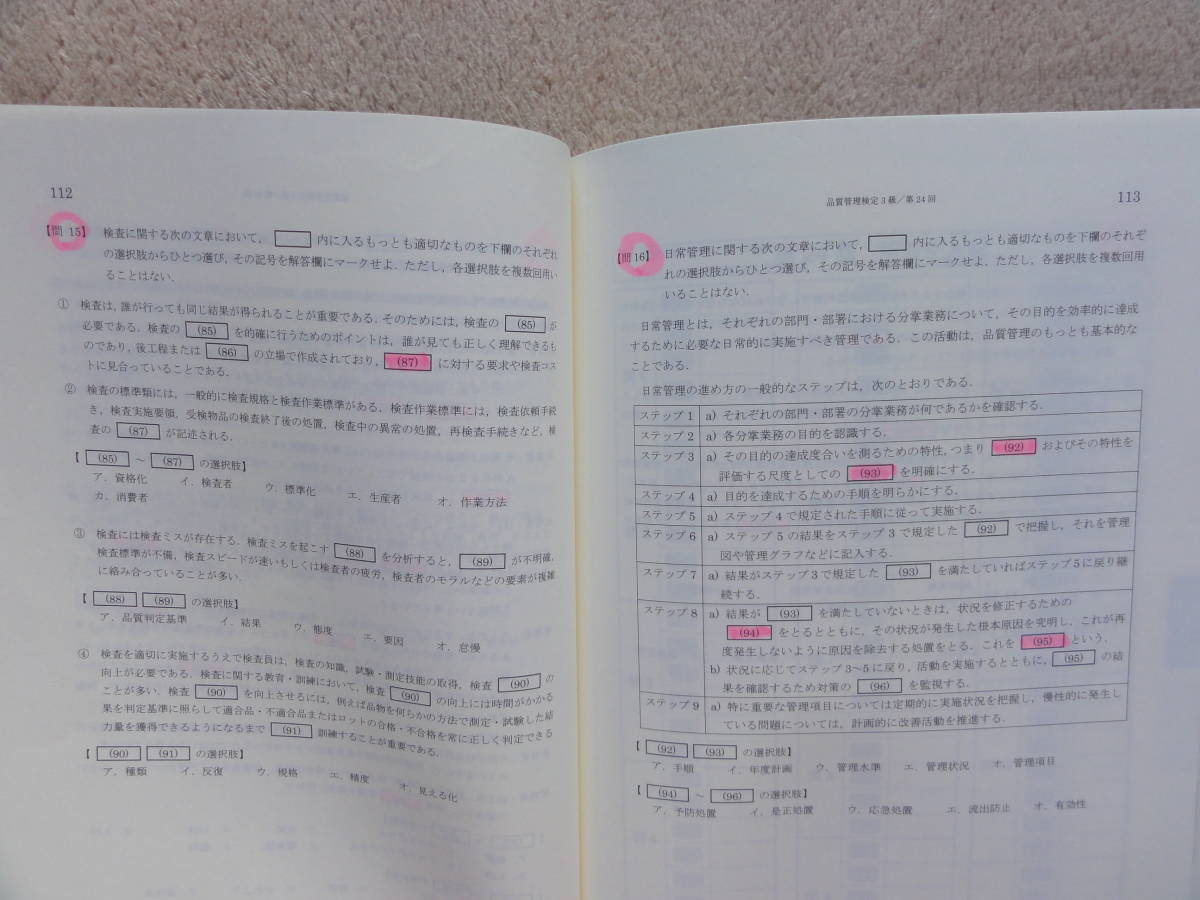 112
【問 15】 検査に関する次の文章において， 内に入るもっとも適切なものを下欄のそれぞれ
の選択肢からひとつ選び，その記号を解答欄にマークせよ．ただし，各選択肢を複数回用い
ることはない．
① 検査は，誰が行っても同じ結果が得られることが重要である．そのためには，検査の (85) が
必要である．検査の (85) を的確に行うためのポイントは，誰が見ても正しく理解できるも
のであり，後工程または (86) の立場で作成されており， (87) に対する要求や検査コス
トに見合っていることである．
② 検査の標準類には，一般的に検査規格と検査作業標準がある．検査作業標準には，検査依頼手続
き，検査実施要領，受検物品の検査終了後の処置，検査中の異常の処置，再検査手続きなど，検
査の (87) が記述される．
【 (85) ～ (87) の選択肢】
ア．資格化 イ．検査者 ウ．標準化 エ．生産者 オ．作業方法
カ．消費者
③ 検査には検査ミスが存在する．検査ミスを起こす (88) を分析すると， (89) が不明確，
検査標準が不備，検査スピードが速いもしくは検査者の疲労，検査者のモラルなどの要素が複雑
に絡み合っていることが多い．
【 (88) (89) の選択肢】
ア．品質判定基準 イ．結果 ウ．態度 エ．要因 オ．怠慢
④ 検査を適切に実施するうえで検査員は，検査の知識，試験・測定技能の取得，検査 (90) の
向上が必要である．検査に関する教育・訓練において，検査 (90) の向上には時間がかかる
ことが多い．検査 (90) を向上させるには，例えば品物を何らかの方法で測定・試験した結
果を判定基準に照らして適合品・不適合品またはロットの合格・不合格を常に正しく判定できる
力量を獲得できるようになるまで (91) 訓練することが重要である．
【 (90) (91) の選択肢】
ア．種類 イ．反復 ウ．規格 エ．精度 オ．見える化
品質管理検定3級／第24回 113
【問 16】 日常管理に関する次の文章において， 内に入るもっとも適切なものを下欄のそれぞ
れの選択肢からひとつ選び，その記号を解答欄にマークせよ．ただし，各選択肢を複数回用
いることはない．
日常管理とは，それぞれの部門・部署における分掌業務について，その目的を効率的に達成
するために必要な日常的に実施すべき管理である．この活動は，品質管理のもっとも基本的な
ことである．
日常管理の進め方の一般的なステップは，次のとおりである．
ステップ1 a) それぞれの部門・部署の分掌業務が何であるかを確認する．
ステップ2 a) 各分掌業務の目的を認識する．
ステップ3 a) その目的の達成度合いを測るための特性，つまり (92) およびその特性を
評価する尺度としての (93) を明確にする．
ステップ4 a) 目的を達成するための手順を明らかにする．
ステップ5 a) ステップ4で規定された手順に従って実施する．
ステップ6 a) ステップ5の結果をステップ3で規定した (92) で把握し，それを管理
図や管理グラフなどに記入する．
ステップ7 a) 結果がステップ3で規定した (93) を満たしていればステップ5に戻り継
続する．
ステップ8 a) 結果が (93) を満たしていないときは，状況を修正するための
(94) をとるとともに，その状況が発生した根本原因を究明し，これが再
度発生しないように原因を除去する処置をとる．これを (95) という．
b) 状況に応じてステップ3~5に戻り，活動を実施するとともに， (95) の結
果を確認するため対策の (96) を監視する．
ステップ9 a) 特に重要な管理項目については定期的に実施状況を把握し，慢性的に発生し
ている問題については，計画的に改善活動を推進する．
【 (92) (93) の選択肢】
ア．手順 イ．年度計画 ウ．管理水準 エ．管理状況 オ．管理項目
【 (94) ～ (96) の選択肢】
ア．予防処置 イ．是正処置 ウ．応急処置 エ．流出防止 オ．有効性